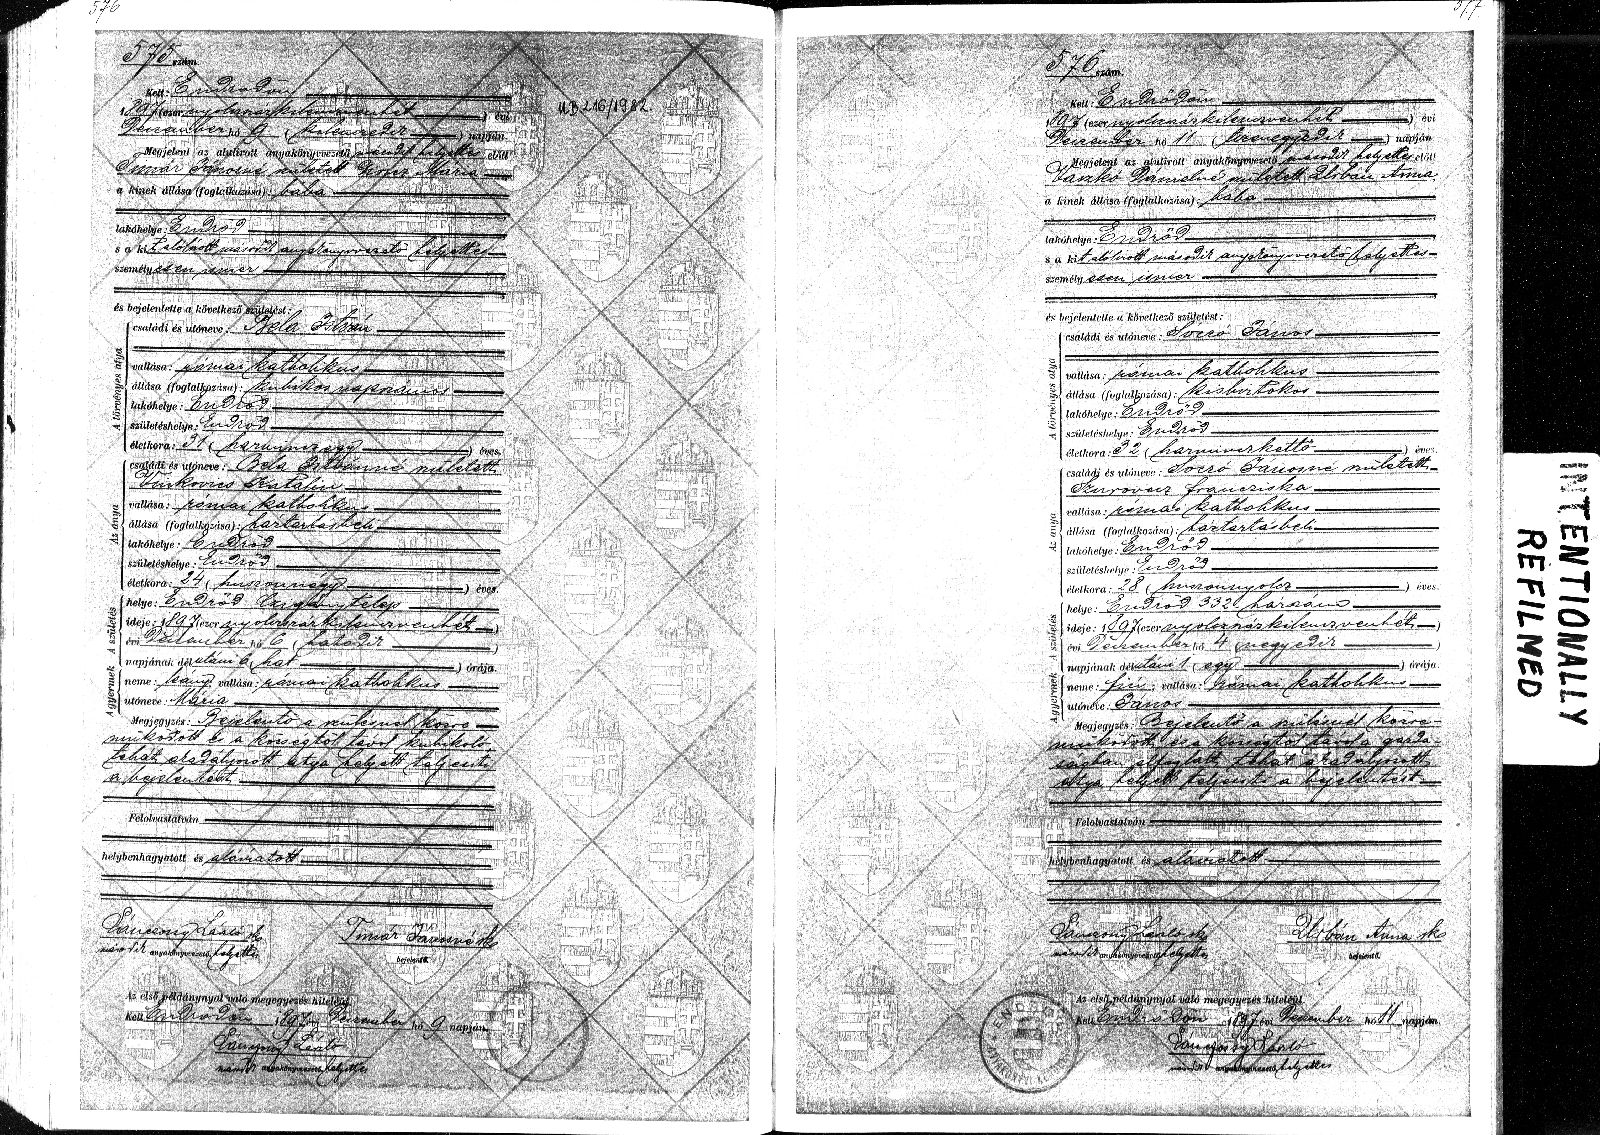 576
575 szám.
Kelt: Endrődön
1897 (ezernyolczszázkilenczvenhét) évi
Deczember hó 9 (kilenczedik) napján.
Megjelent az alulirott anyakönyvvezető másodi helyettes előtt
Timár Jánosné született Mária
a kinek állása (foglalkozása): bába
lakóhelye: Endrőd
s a kit alólirott másodi anyakönyvvezető helyettes
személyesen ismer
és bejelentette a következő születést:
A törvényes atya
családi és utóneve: Bela István
vallása: római katholikus
állása (foglalkozása): kubikos napszámos
lakóhelye: Endrőd
születéshelye: Endrőd
életkora: 31 (harminczegy) éves.
Az anya
családi és utóneve: Bela Istvánné született
Katalin
vallása: római katholikus
állása (foglalkozása): háztartásbeli
lakóhelye: Endrőd
születéshelye: Endrőd
életkora: 24 (huszonnégy) éves.
A születés
helye: Endrőd Czigánytelep
ideje: 1897 (ezernyolczszázkilenczvenhét)
évi Deczember hó 6 (hatodik)
napjának délutáni 6 (hat) órája.
A gyermek
neme: leány vallása: római katholikus
utóneve: Mária
Megjegyzés: Bejelentő a szülésnél közre
működött és a községtől távol kubikoló
tehát akadályozott atya helyett teljesíti
a bejelentést
Felolvastatván
helybenhagyatott és aláiratott
László sk
másodi anyakönyvvezető helyettes
Timár Jánosné sk
bejelentő.
Az első példánynyal való megegyezés hiteléül
Kelt Endrődön 1897 évi Deczember hó 9 napján.
László
másodi anyakönyvvezető helyettes
U.B 216/1982
577
576 szám.
Kelt: Endrődön
1897 (ezernyolczszázkilenczvenhét) évi
Deczember hó 11 (tizenegyedik) napján
Megjelent az alulirott anyakönyvvezető másodi helyettes előtt
Jaszkó Dánielné született Urbán Anna
a kinek állása (foglalkozása): bába
lakóhelye: Endrőd
s a kit alólirott másodi anyakönyvvezető helyettes
személyesen ismer
és bejelentette a következő születést:
A törvényes atya
családi és utóneve: Sóczó János
vallása: római katholikus
állása (foglalkozása): kisbirtokos
lakóhelye: Endrőd
születéshelye: Endrőd
életkora: 32 (harminczkettő) éves.
Az anya
családi és utóneve: Sóczó Jánosné született
Francziska
vallása: római katholikus
állása (foglalkozása): háztartásbeli
lakóhelye: Endrőd
születéshelye: Endrőd
életkora: 28 (huszonnyolcz) éves.
A születés
helye: Endrőd 332 házszám
ideje: 1897 (ezernyolczszázkilenczvenhét)
évi Deczember hó 4 (negyedik)
napjának délutáni 1 (egy) órája.
A gyermek
neme: fiú; vallása: római katholikus
utóneve: János
Megjegyzés: Bejelentő a szülésnél közre-
működött és a községtől távol a gazda-
ságban elfoglalt tehát akadályozott
atya helyett teljesíti a bejelentést
Felolvastatván
helybenhagyatott és aláiratott
László sk
másodi anyakönyvvezető helyettes
Urbán Anna sk
bejelentő.
Az első példánynyal való megegyezés hiteléül
Kelt Endrődön 1897 évi Deczember hó 11 napján.
László
másodi anyakönyvvezető helyettes
INTENTIONALLY
REFILMED